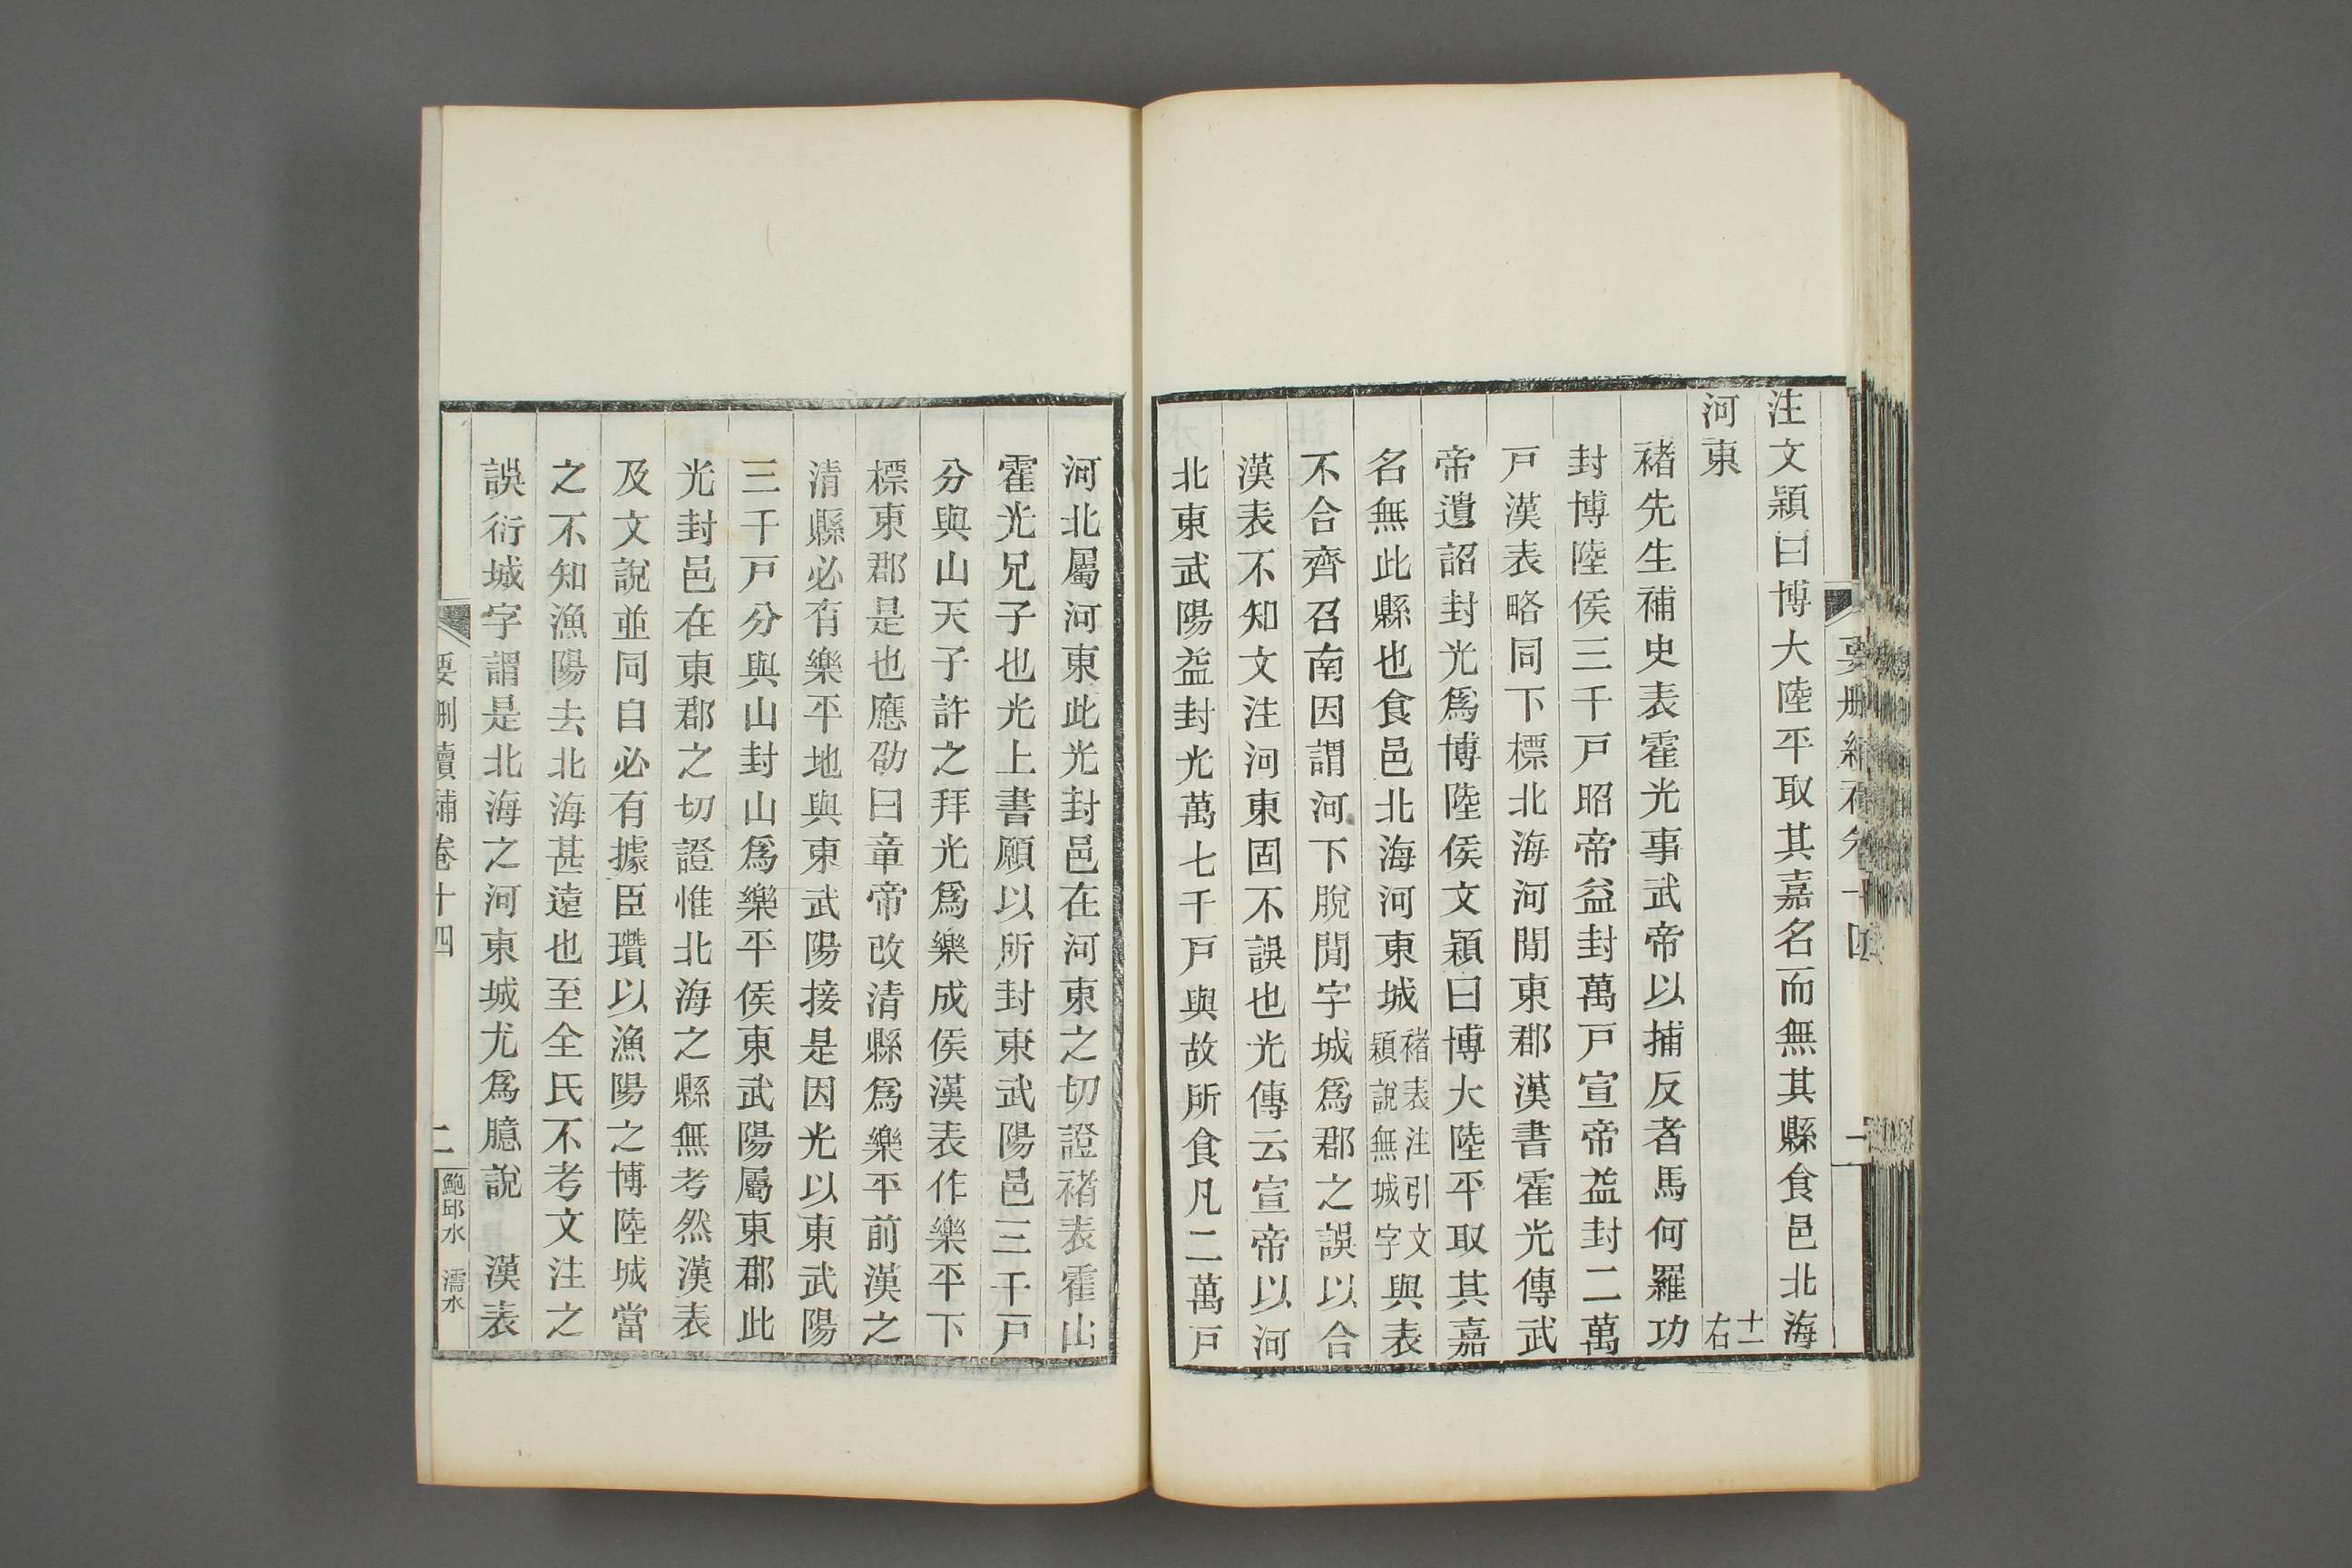 注文穎曰博大陸平取其嘉名而無其縣食邑北海
河東 十一右
褚先生補史表霍光事武帝以捕反者馬何羅功
封博陸侯三千戸昭帝益封萬戸宣帝益封二萬
戸漢表略同下標北海河閒東郡漢書霍光傳武
帝遺詔封光爲博陸侯文穎曰博大陸平取其嘉
名無此縣也食邑北海河東城褚表注引文穎說無城字與表
不合齊召南因謂河下脫閒字城爲郡之誤以合
漢表不知文注河東固不誤也光傳云宣帝以河
北東武陽益封光萬七千戸與故所食凡二萬戸
河北屬河東此光封邑在河東之切證褚表霍山
霍光兄子也光上書願以所封東武陽邑三千戸
分與山天子許之拜光爲樂成侯漢表作樂平下
標東郡是也應劭曰章帝改清縣爲樂平前漢之
清縣必有樂平地與東武陽接是因光以東武陽
三千戸分與山封山爲樂平侯東武陽屬東郡此
光封邑在東郡之切證惟北海之縣無考然漢表
及文說並同自必有據臣瓚以漁陽之博陸城當
之不知漁陽去北海甚遠也至全氏不考文注之
誤衍城字謂是北海之河東城尤爲臆說 漢表
要刪續補卷十四 二 鮑邱水 濡水